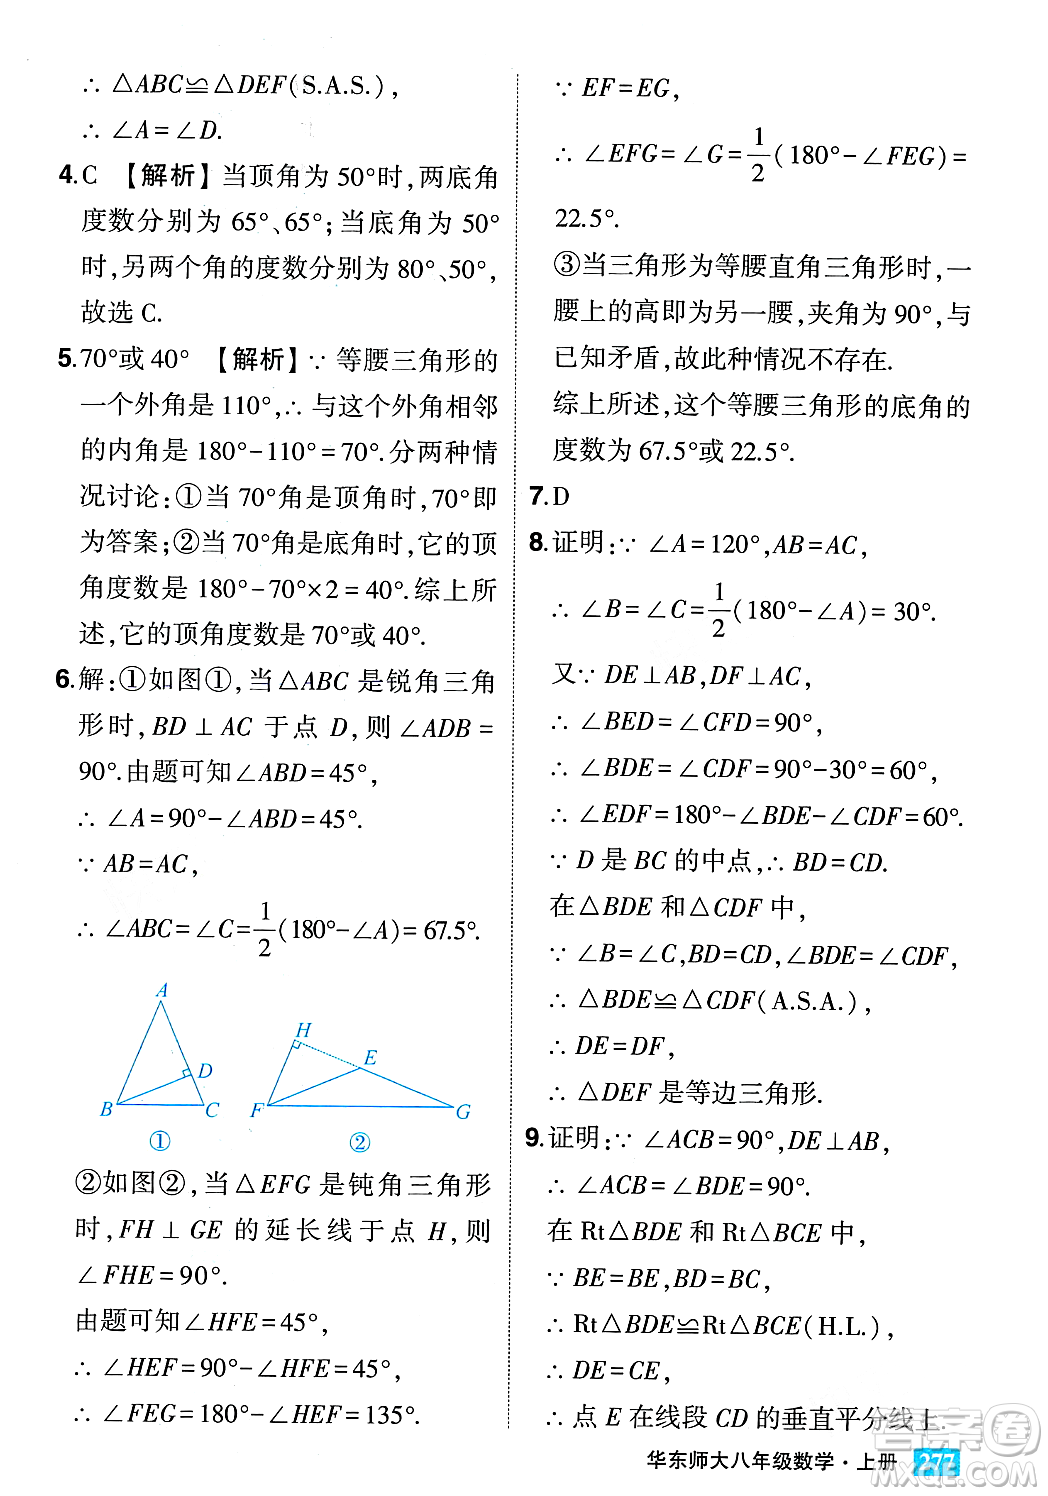 ∴ △ABC≌△DEF(S.A.S.),
∴ ∠A=∠D.
4.C 【解析】当顶角为50°时,两底角
度数分别为65°、65°;当底角为50°
时,另两个角的度数分别为80°、50°,
故选C.
5.70°或40° 【解析】∵ 等腰三角形的
一个外角是110°,∴ 与这个外角相邻
的内角是180°-110°=70°.分两种情
况讨论:①当70°角是顶角时,70°即
为答案;②当70°角是底角时,它的顶
角度数是180°-70°×2=40°.综上所
述,它的顶角度数是70°或40°.
6.解:①如图①,当△ABC是锐角三角
形时,BD⊥AC于点D,则∠ADB=
90°.由题可知∠ABD=45°,
∴ ∠A=90°-∠ABD=45°.
∵ AB=AC,
∴ ∠ABC=∠C=1/2(180°-∠A)=67.5°.
A
D
B
C
①
H
E
F
G
②
②如图②,当△EFG是钝角三角形
时,FH⊥GE的延长线于点H,则
∠FHE=90°.
由题可知∠HFE=45°,
∴ ∠HEF=90°-∠HFE=45°,
∴ ∠FEG=180°-∠HEF=135°.
∵ EF=EG,
∴ ∠EFG=∠G=1/2(180°-∠FEG)=
22.5°.
③当三角形为等腰直角三角形时,一
腰上的高即为另一腰,夹角为90°,与
已知矛盾,故此种情况不存在.
综上所述,这个等腰三角形的底角的
度数为67.5°或22.5°.
7.D
8.证明:∵ ∠A=120°,AB=AC,
∴ ∠B=∠C=1/2(180°-∠A)=30°.
又∵ DE⊥AB,DF⊥AC,
∴ ∠BED=∠CFD=90°,
∴ ∠BDE=∠CDF=90°-30°=60°,
∴ ∠EDF=180°-∠BDE-∠CDF=60°.
∵ D是BC的中点,∴ BD=CD.
在△BDE和△CDF中,
∵ ∠B=∠C,BD=CD,∠BDE=∠CDF,
∴ △BDE≌△CDF(A.S.A.),
∴ DE=DF,
∴ △DEF是等边三角形.
9.证明:∵ ∠ACB=90°,DE⊥AB,
∴ ∠ACB=∠BDE=90°.
在Rt△BDE和Rt△BCE中,
∵ BE=BE,BD=BC,
∴ Rt△BDE≌Rt△BCE(H.L.),
∴ DE=CE,
∴ 点E在线段CD的垂直平分线上.
华东师大八年级数学·上册 277
答案圈
MXQE.COM